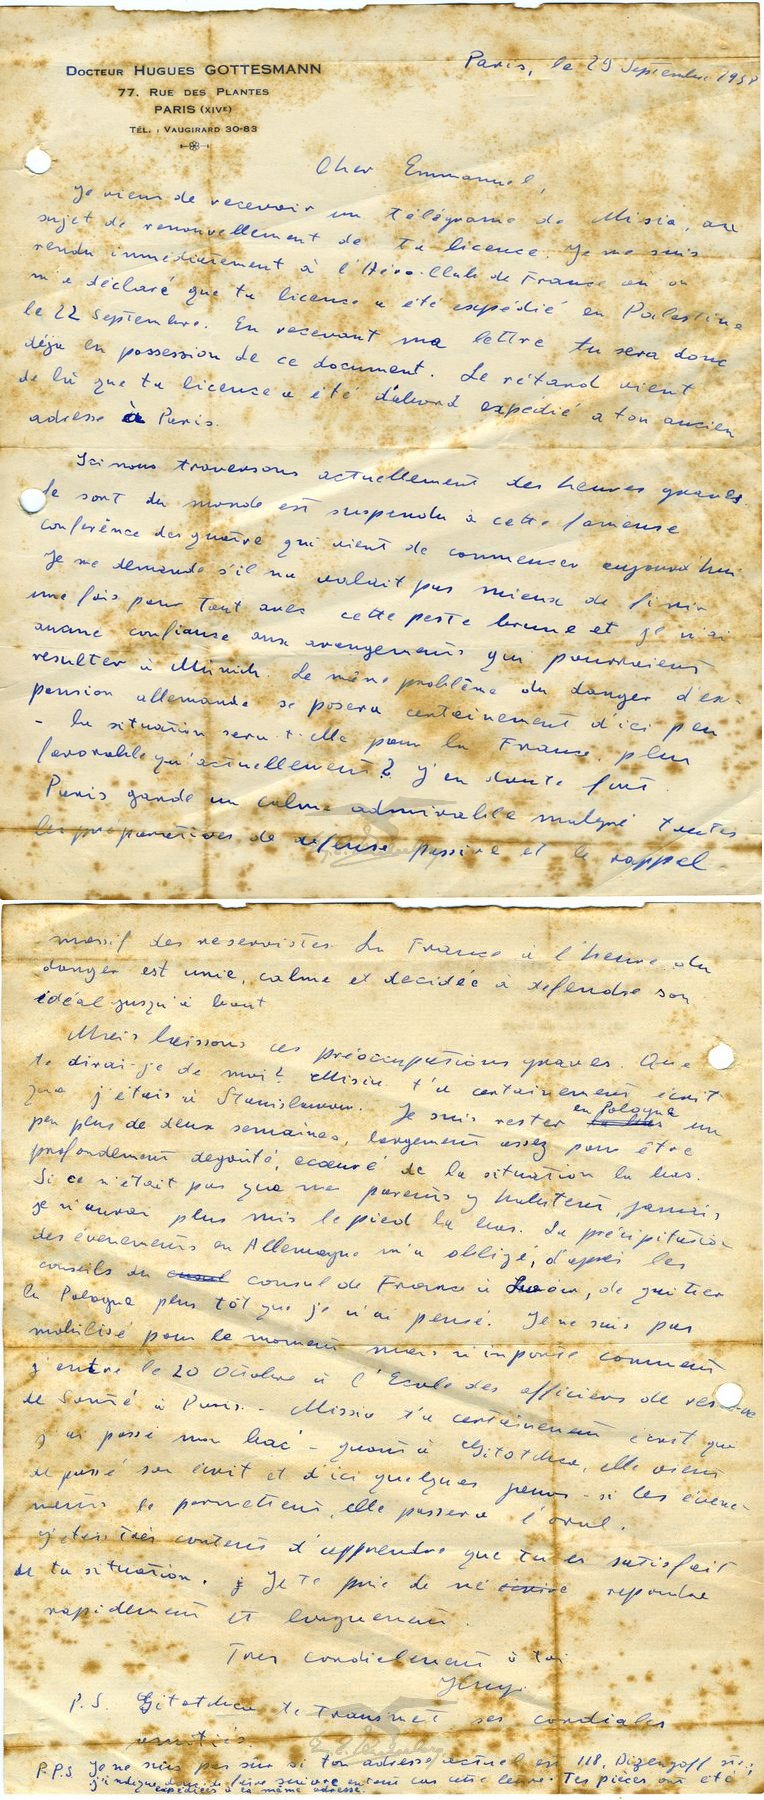 DOCTEUR HUGUES GOTTESMANN
77, RUE DES PLANTES
PARIS (XIVE)
TÉL. : VAUGIRARD 30-83
Paris, le 29 Septembre 1938
Cher Emmanuel,
Je viens de recevoir un télégrame de Misia, au
sujet de renouvellement de ta licence. Je me suis
rendu immédiatement à l'Aéro-Club de France où on
m'a déclaré que ta licence a été expédié en Palestine
le 22 Septembre. En recevant ma lettre tu sera donc
déja en possession de ce document. Le retard vient
de là que ta licence a été d'abord expédié a ton ancien
adresse à Paris.
Ici nous traversons actuellement des heures graves.
Le sort du monde est suspendu à cette fameuse
conférence des quatre qui vient de commencer aujourd'hui
Je me demande s'il ne valait pas mieux de finir
une fois pour tout avec cette peste brune et je n'ai
aucune confianse aux arengements qui pourraient
resulter à Münich. Le même problème du danger d'ex-
pension allemande se posera certainement d'ici peu
- la situation sera-t-elle pour la France plus
favorable qu'actuellement? J'en doute fort.
Paris garde un calme admirable malgré toutes
les préparatives de défense passive et le rappel
massif des reservistes. La France à l'heure du
danger est unie, calme et decidée à defendre son
idéal jusqu'à bout
Mais laissons ces préocupations graves. Que
te dirai-je de moi? Misia t'a certainement écrit
que j'étais à Stanislawow. Je suis rester en Pologne un
peu plus de deux semaines, largement assez pour être
profondement degouté, écœuré de la situation la bas.
Si ce n'était pas que mes parents y habitent, jamais
je n'aurai plus mis le pied la bas. La précipitation
des évenements en Allemagne m'a obligé, d'après les
conseils du consul de France à Lwów, de quitter
la Pologne plus tôt que je n'ai pensé. Je ne suis pas
mobilisé pour le moment mais n'importe comment
j'entre le 20 Octobre à l'Ecole des officiers de reserve
de Santé à Paris. - Missia t'a certainement écrit que
j'ai passé mon bac - quant à Gitotchka, elle vient
de passé son écrit et d'ici quelques jours - si les évene-
ments le permettent, elle passera l'oral.
J'étais très content d'apprendre que tu es satisfait
de ta situation. Je te prie de me repondre
rapidement et longuement.
Tres cordialement à toi
P.S. Gitotchka te transmet ses cordiales
amitiés.
P.P.S Je ne suis pas sûr si ton adresse actuel est 118, Dizengoff str.;
j'indique donc de faire suivre en tout cas cette lettre. Tes pièces ont été
expédiées à la même adresse.